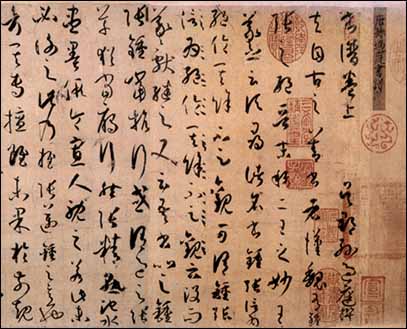 唐孫過庭書譜
書譜卷上 吳郡孫過庭撰
夫自古之善書者漢魏有鍾
張之絕晉末稱二王之妙王
羲之云頃尋諸名書鍾張信為
絕倫其餘不足觀可謂鍾張
信為絕倫其餘不足觀云沒而
羲獻繼之又云吾書比之鍾
張鍾當抗行或謂過之張
草猶當雁行然張精熟池水
盡墨假令寡人耽之若此未
必謝之此乃推張邁鍾之意
也考其專擅雖未果於前規